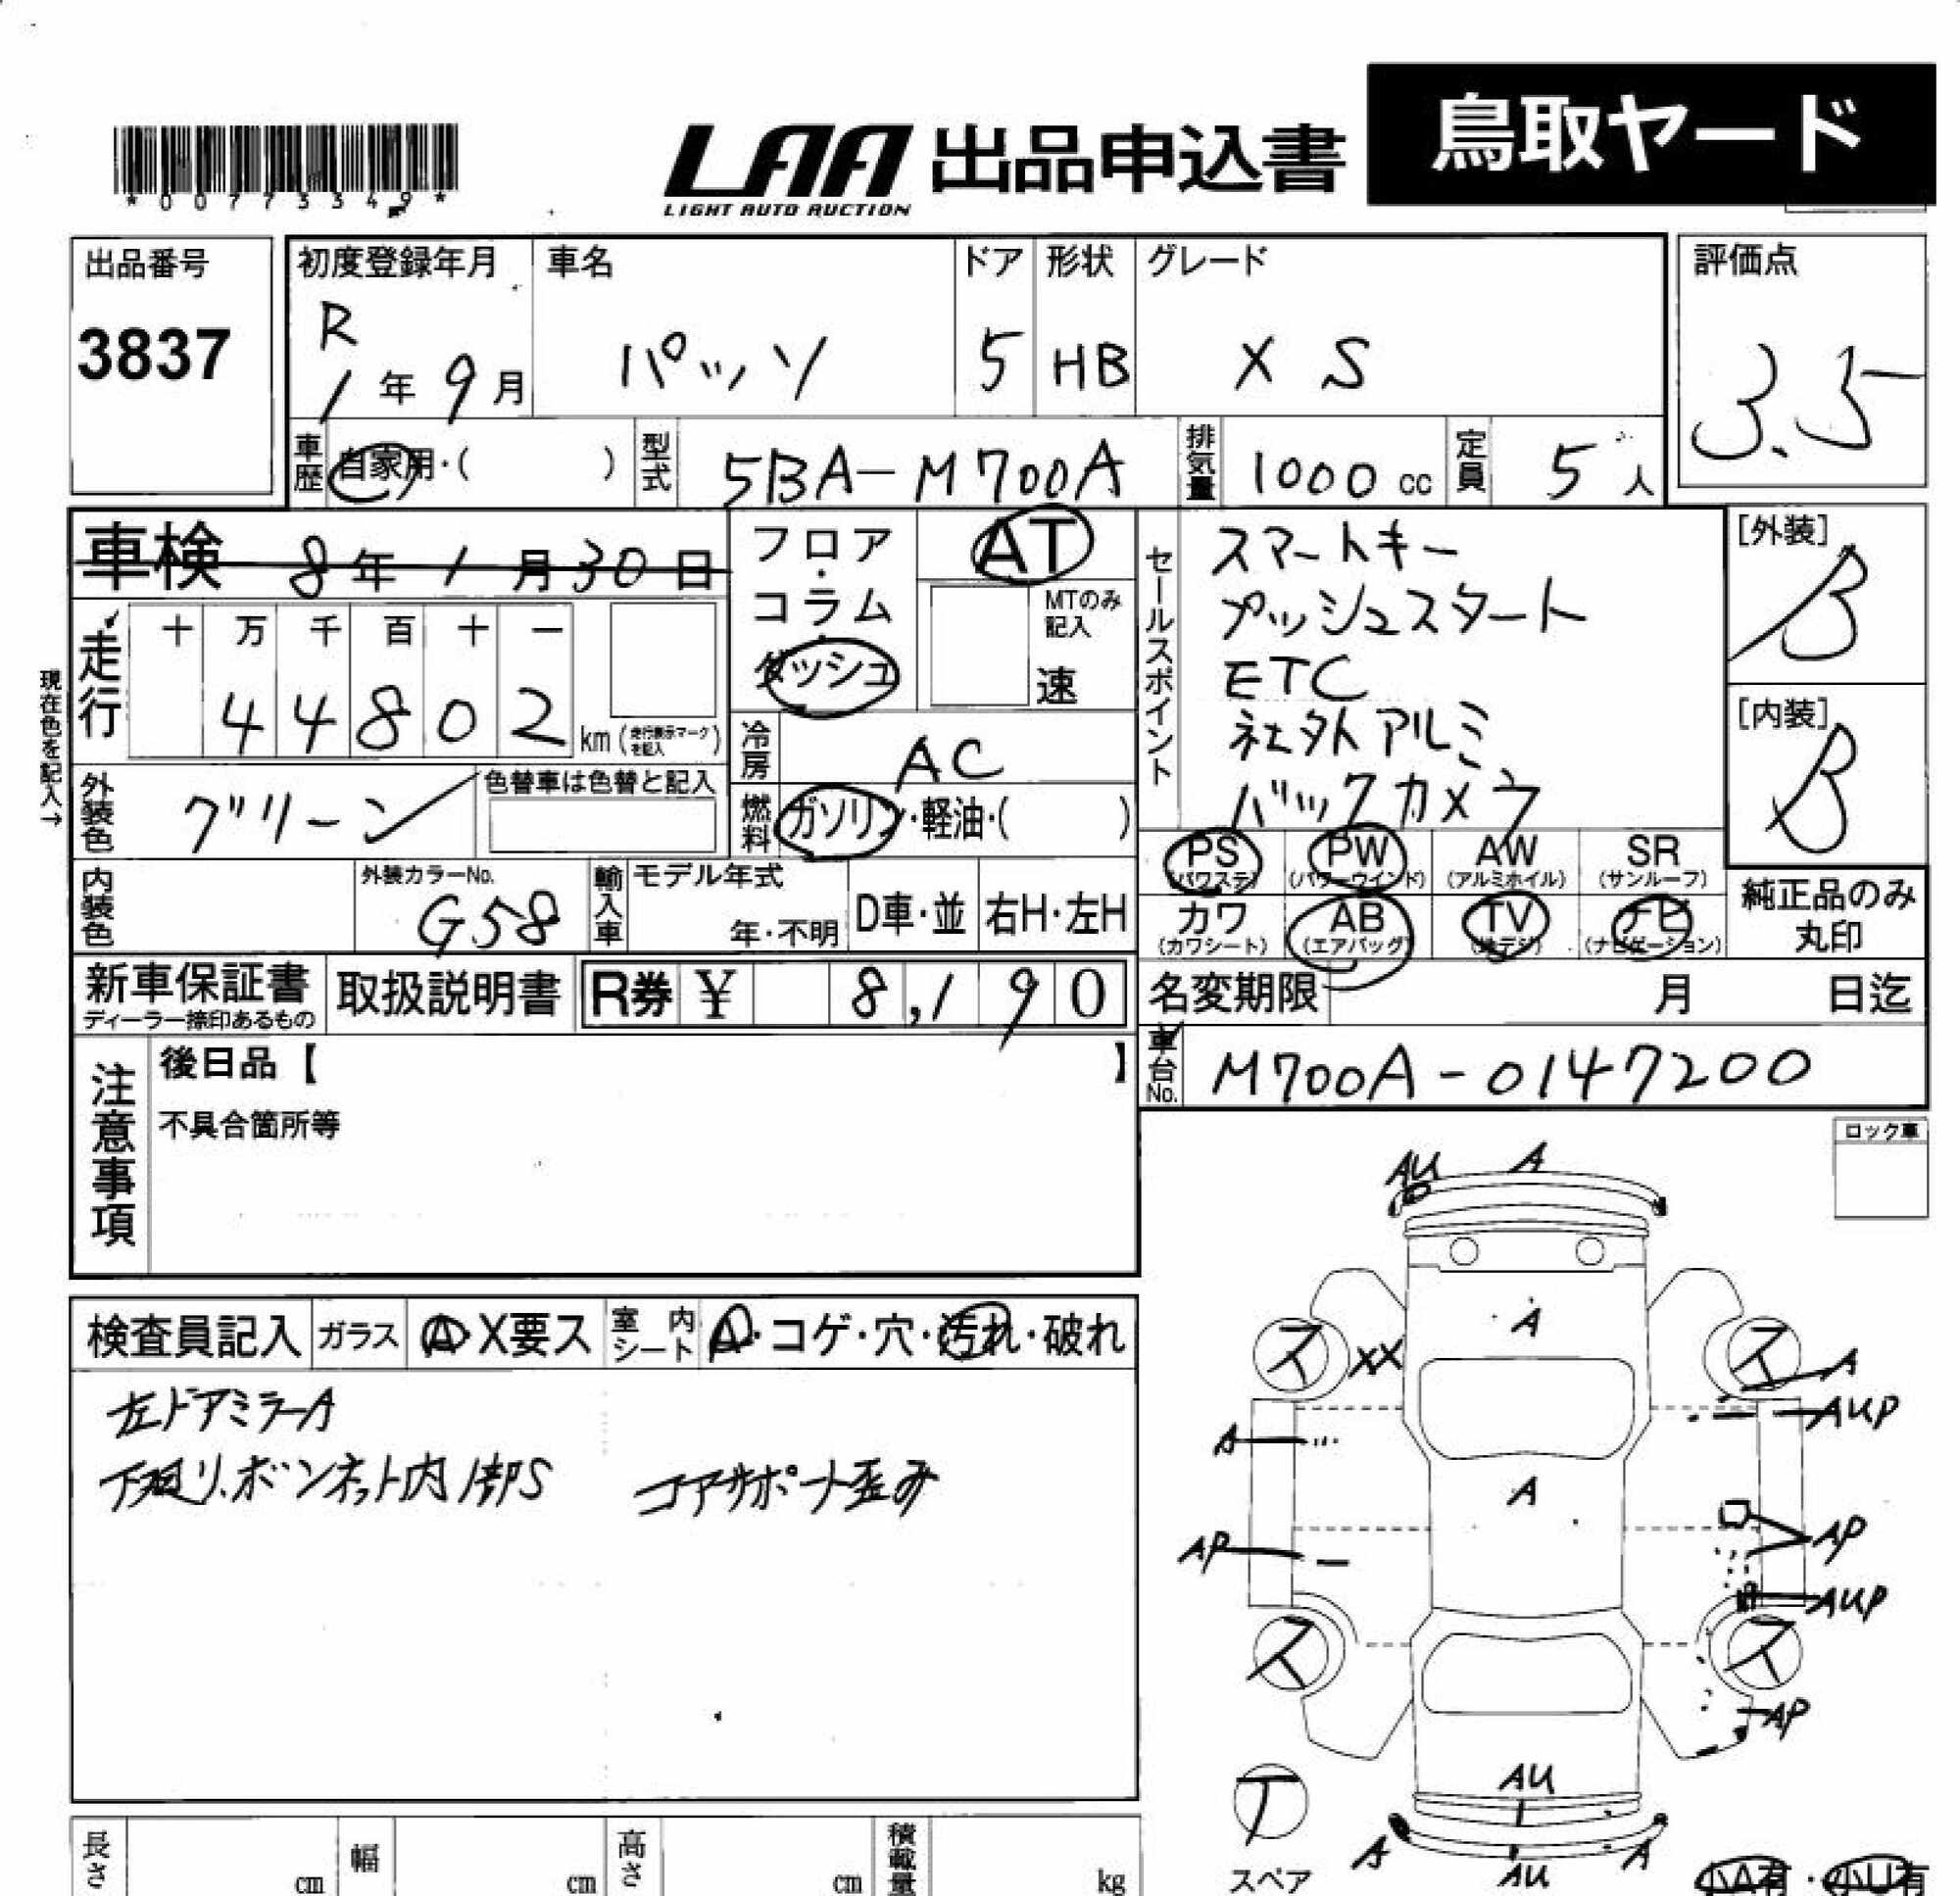 鳥取ヤード
LAA 出品申込書
LIGHT AUTO AUCTION
*00773349*
出品番号
3837
初度登録年月
R
1年9月
車名
パッソ
ドア
5
形状
HB
グレード
X S
評価点
3.5
車歴
自家用・( )
型式
5BA-M700A
排気量
1000 cc
定員
5人
車検 8年1月30日
フロア・コラム・ダッシュ
AT
MTのみ記入
速
セールスポイント
スマートキー
プッシュスタート
ETC
社外アルミ
バックカメラ
[外装]
B
[内装]
B
現在色を記入→
走行
十 万 千 百 十 一
4 4 8 0 2 km (走行表示マークを記入)
冷房
AC
外装色
グリーン
色替車は色替と記入
燃料
ガソリン・軽油・( )
PS (パワステ)
PW (パワーウインド)
AW (アルミホイル)
SR (サンルーフ)
カワ (カワシート)
AB (エアバッグ)
TV (地デジ)
ナビ (ナビゲーション)
純正品のみ丸印
内装色
外装カラーNo.
G58
輸入車
モデル年式
年・不明
D車・並
右H・左H
新車保証書
ディーラー捺印あるもの
取扱説明書
R券 ¥ 8,190
名変期限 月 日迄
車台No.
M700A-0147200
注意事項
後日品【 】
不具合箇所等
ロック車
検査員記入
ガラス
A・X要ス
室内シート
A・コゲ・穴・汚れ・破れ
左ドアミラーA
下廻り、ボンネット内部S コアサポート歪み
AU A
A
ス XX ス A
AUP
A
A
AP
AP
AUP
ス ス
AP
AU
T
スペア
A AU A
小A有・小U有
長さ cm
幅 cm
高さ cm
積載量 kg